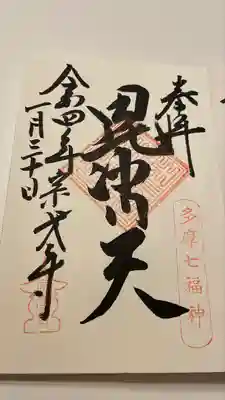 奉拝
多摩七福神
毘沙門天
令和四年 宗建寺
一月三十日